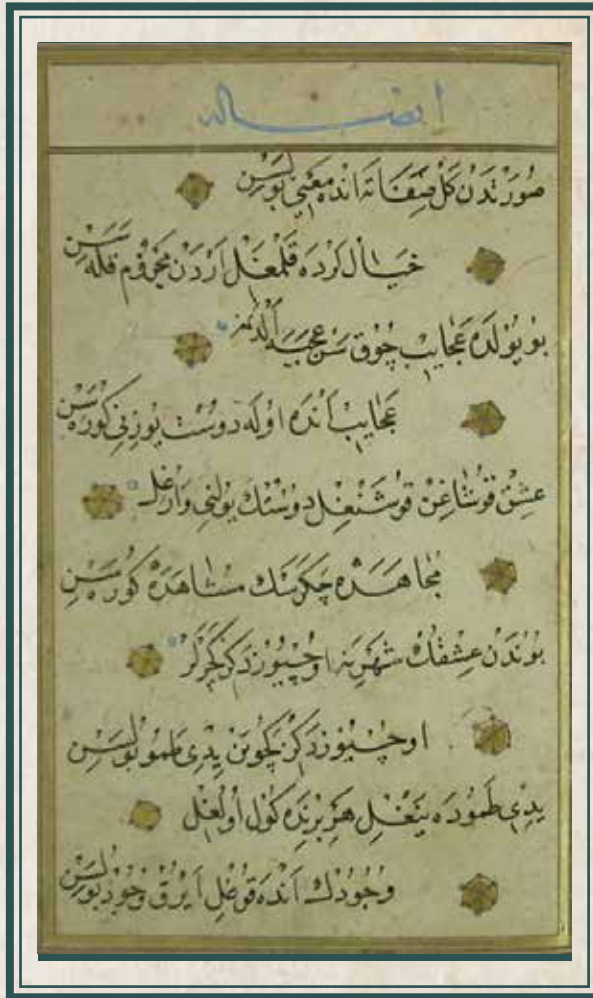 ايضاله
صُورَتْدَنْ كَلْ صِفَاتَه اَنْدَه مَعْنِي بُولَسِنْ
خَيَالْ لَرْدَه قَلْمَغِلْ اَرْدَنْ مَحْرُومْ قَلَه سِنْ
بُو يُولْدَه عَجَايِبْ چُوقْ سَنْ عَجَبَه اَلْدَنْمَه
عَجَايِبْ اَنْدَه اوْلَه دُوسْتْ يُوزِنِي كُورَه سِنْ
عِشْقْ قُوشَاغِنْ قُوشَنْغِلْ دُوسْتُكْ يُولِنِي وَارْغِلْ
مُجَاهَدَه چَكَرْسَنْكْ مُشَاهَدَه كُورَه سِنْ
بُونْدَنْ عِشْقُكْ شَهْرِينَه اوچْيُوزْ دَكِزْ كَچَرْلَرْ
اوچْيُوزْ دَكِزْ كَچُوبَنْ يِدِي طَامُو بُولَسِنْ
يِدِي طَمُودَه يَنْغِلْ هَرْ بِرِنْدَه كُولْ اُولْغِلْ
وُجُودُكْ اَنْدَه قُوغِلْ اَيْرُقْ وُجُودْ بُولَسِنْ